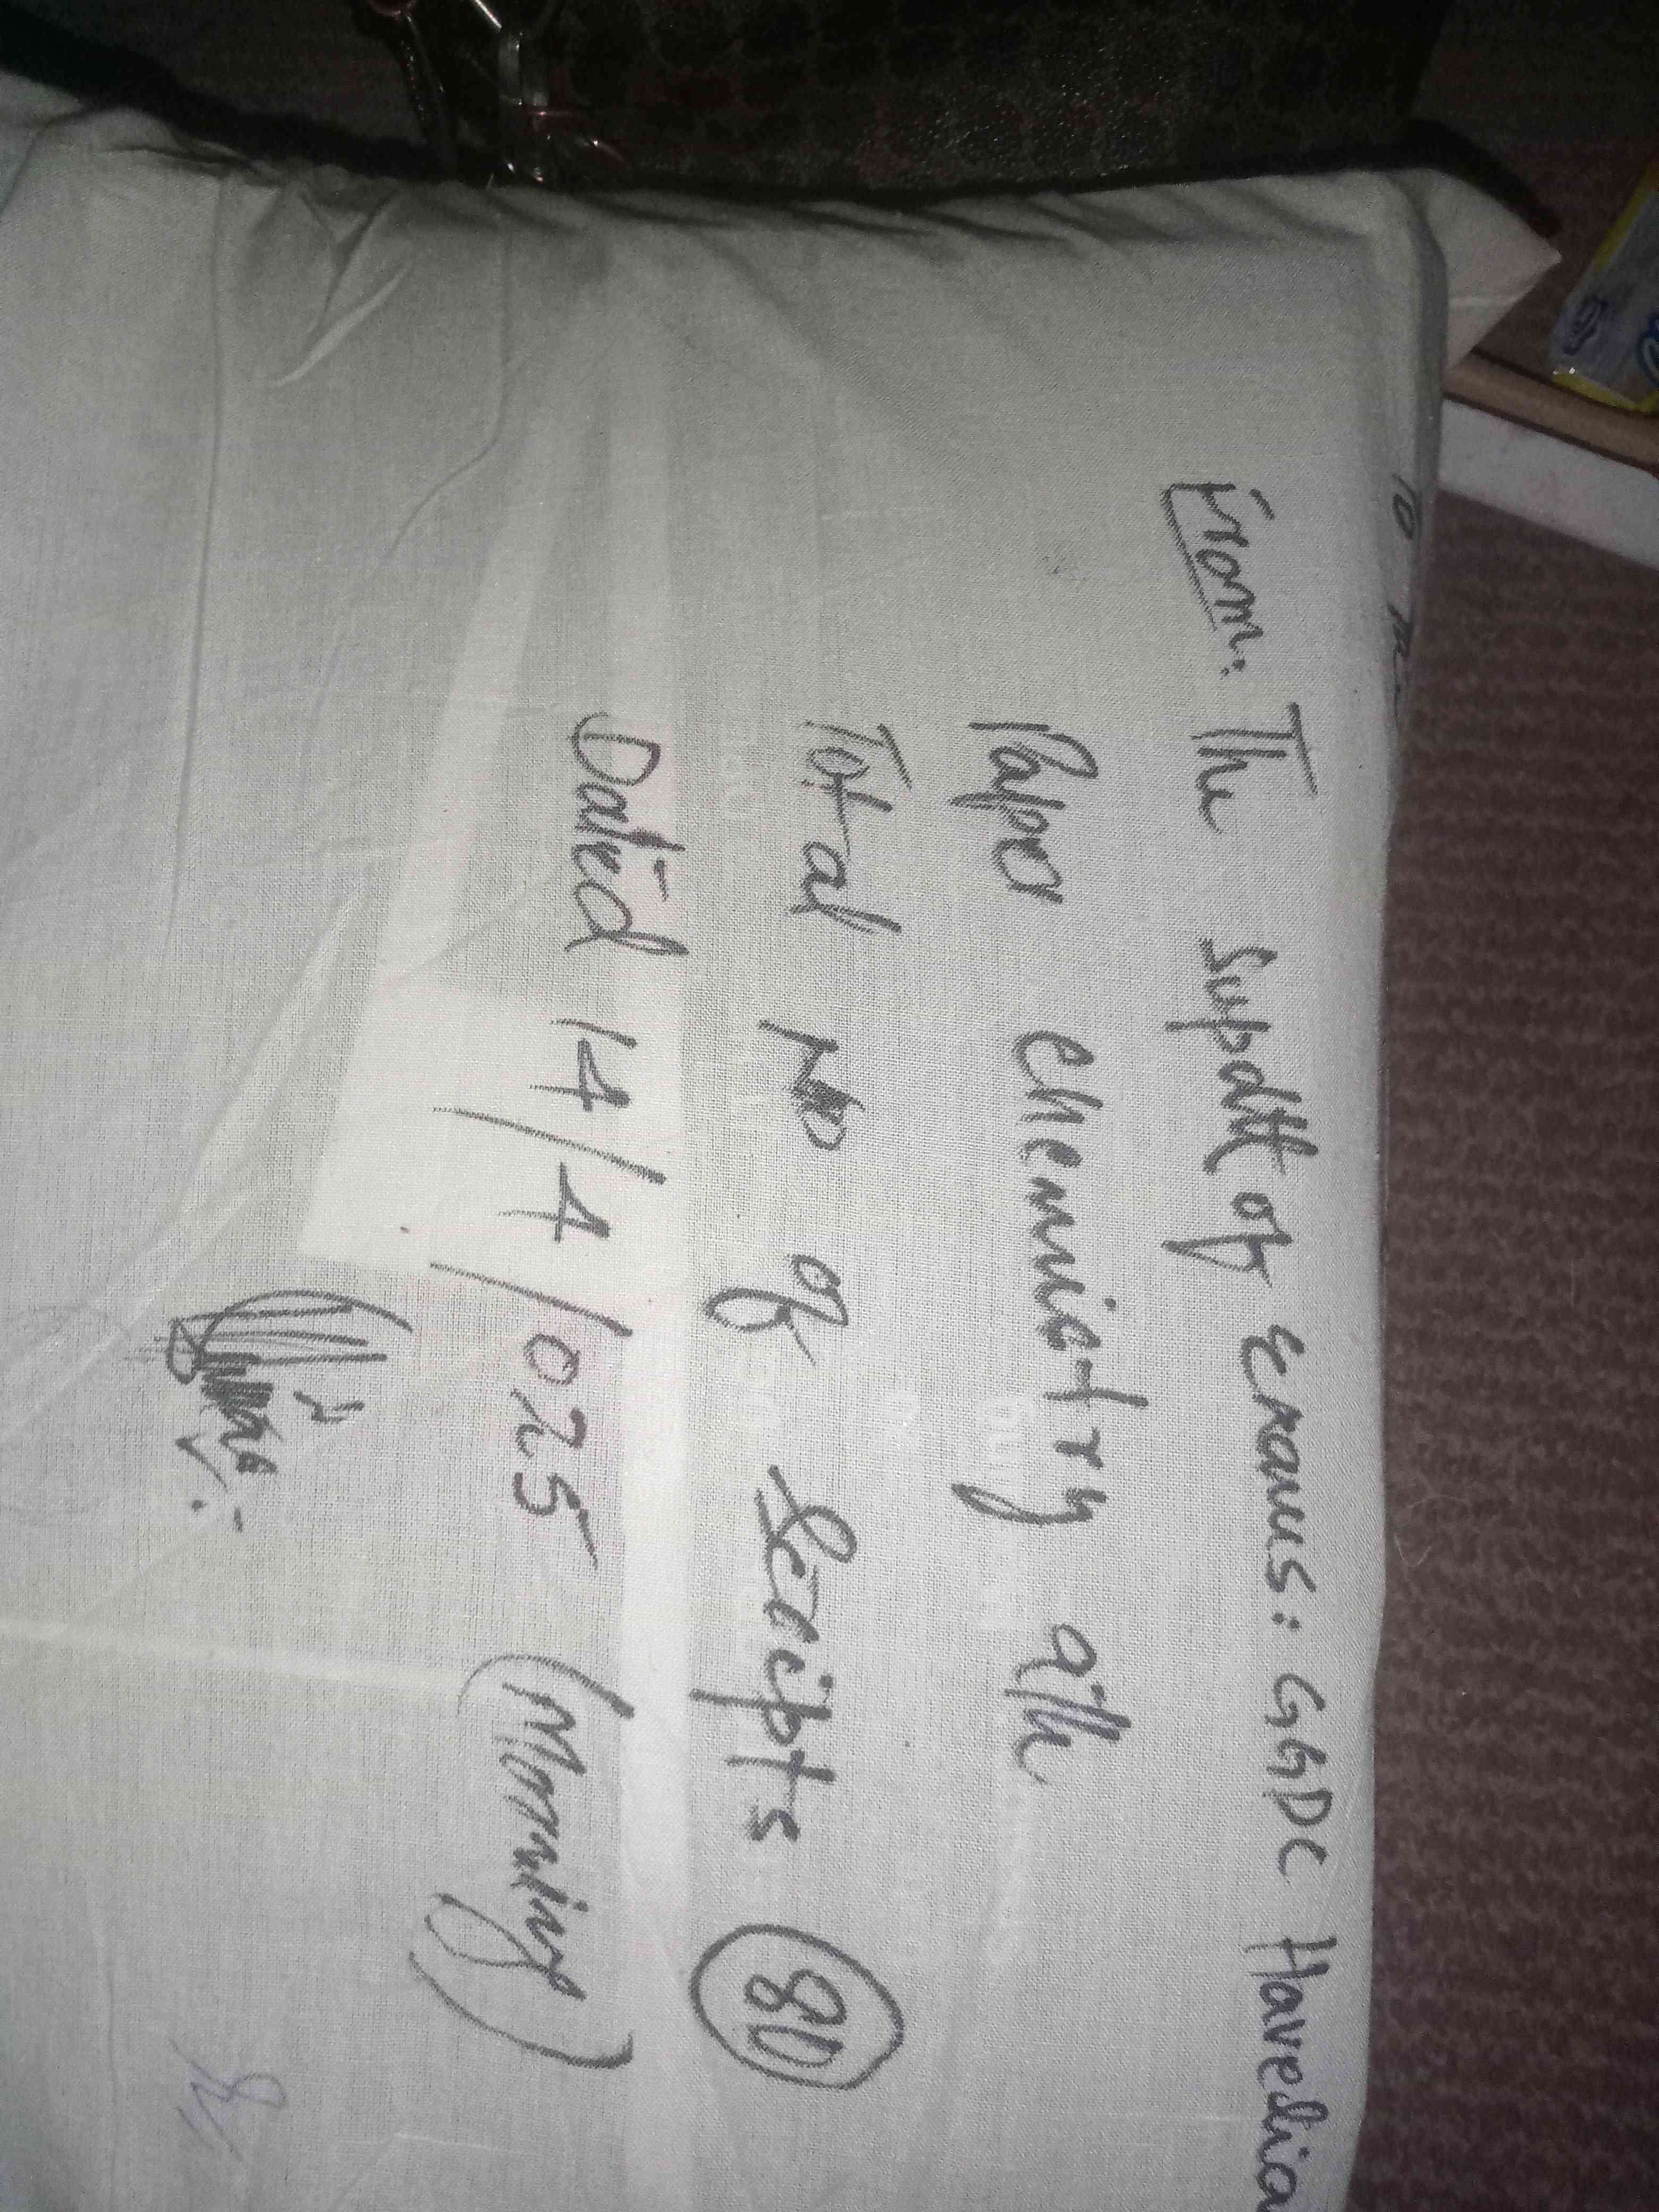 To The
From: The supdtt of Exams: GGDC Havelia
Paper chemistry 9th
Total No of Scripts 80
Dated 14/4/025 (Morning)